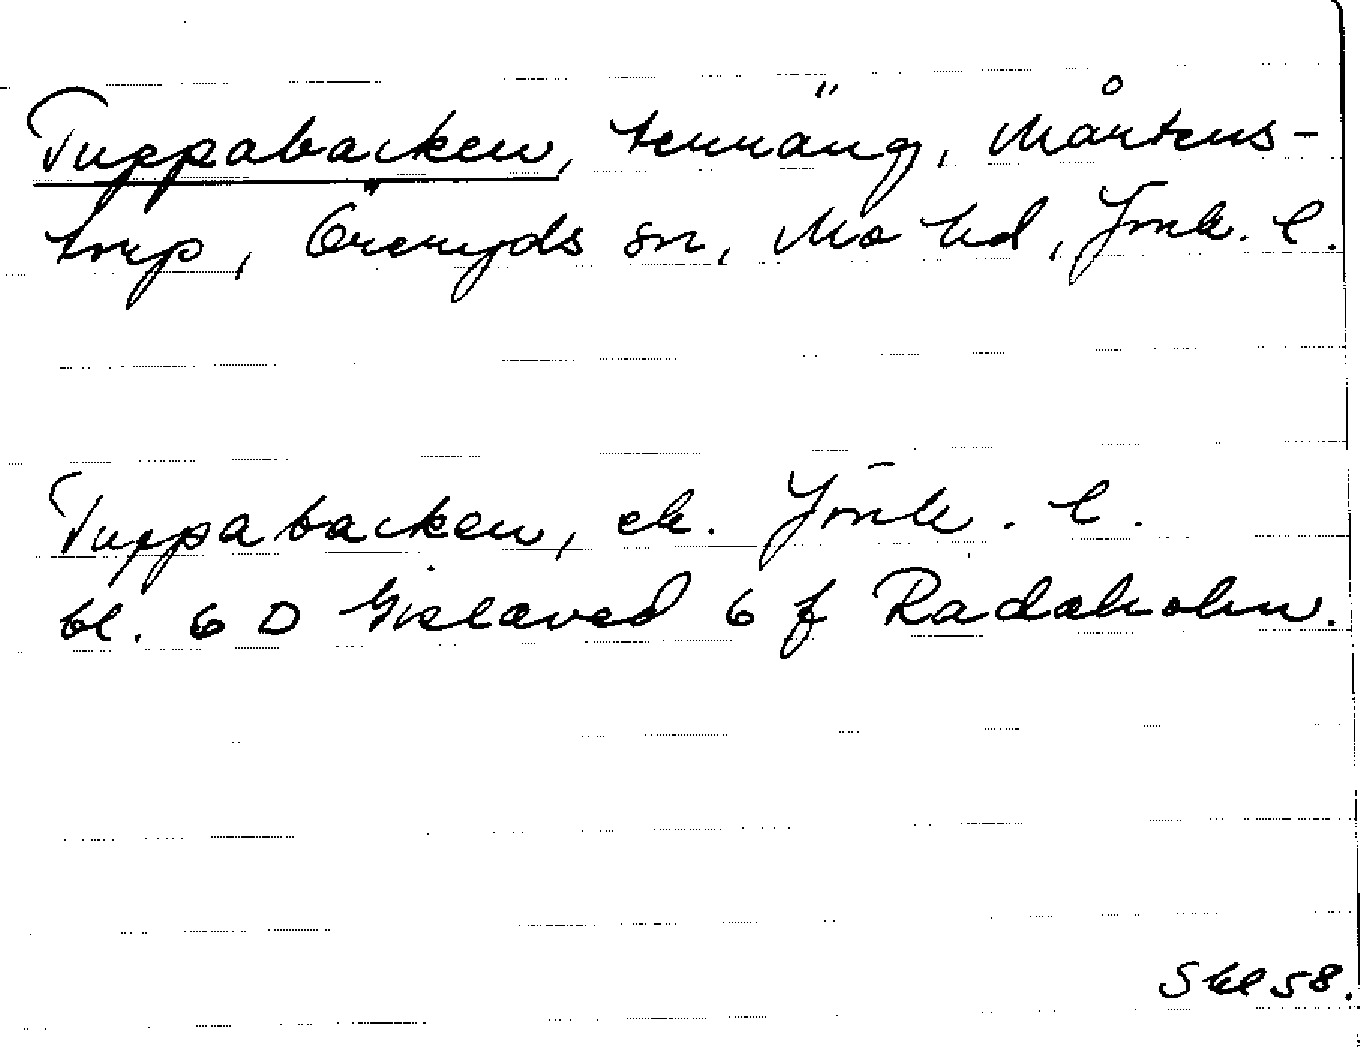 Tuppabacken, terräng, Mårtens-
torp, Öreryds sn, Mo hd, Jönk. l.
Tuppabacken, ek. Jönk. l.
bl. 6 D Gislaved 6 f Radaholm.
Skl 58.